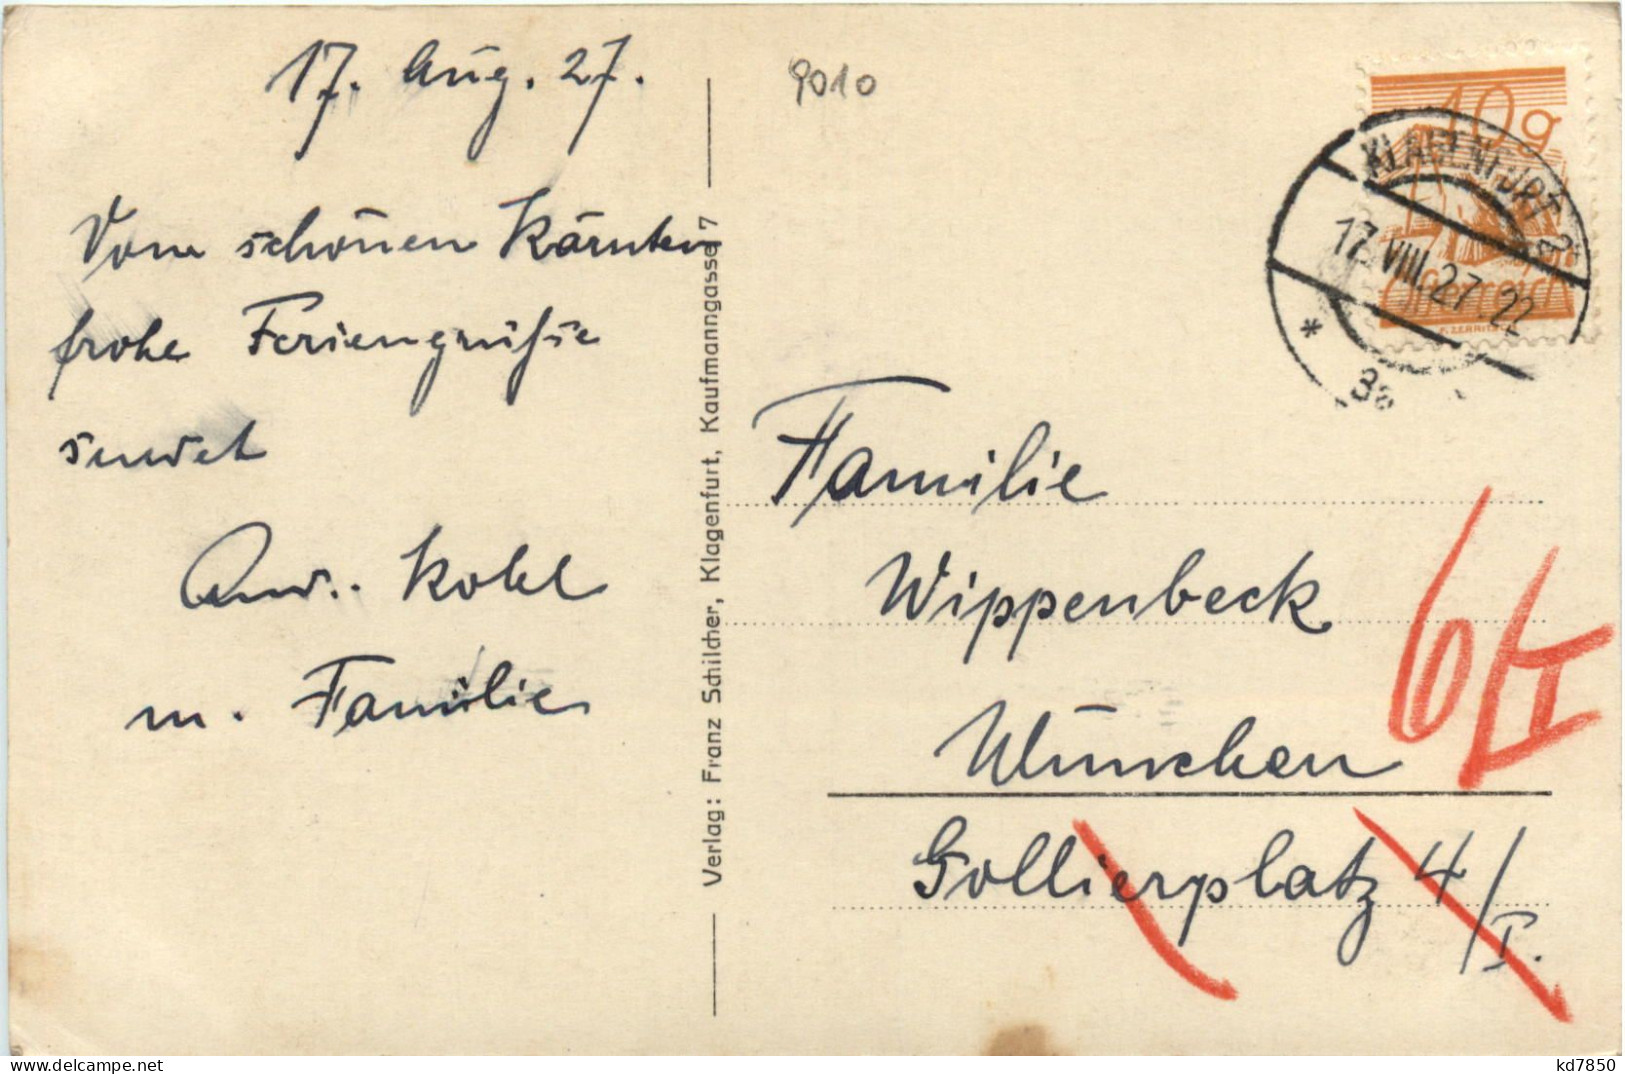 17. Aug. 27.
Vom schönen Kärnten
frohe Feriengrüße
sendet
And.. Kohl
m. Familie
Verlag: Franz Schilcher, Klagenfurt, Kaufmanngasse 7
9010
10g
Österreich
KLAGENFURT 2
17.VIII.27.22
* 3a
Familie
Wippenbeck
München
6/I
Gollierplatz 4/I.
delcampe.net
kd7850